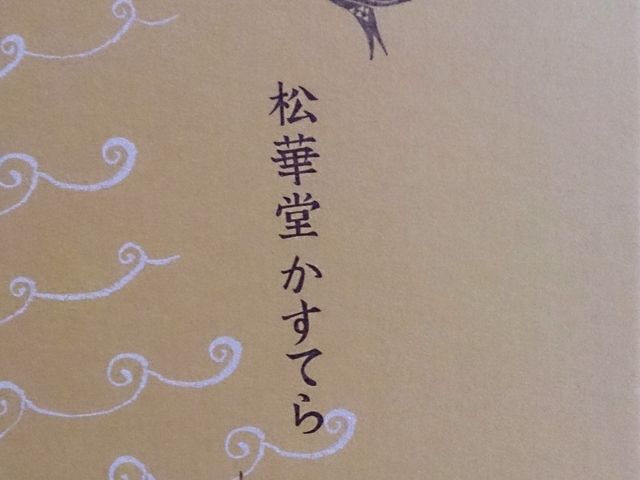 松華堂かすてら